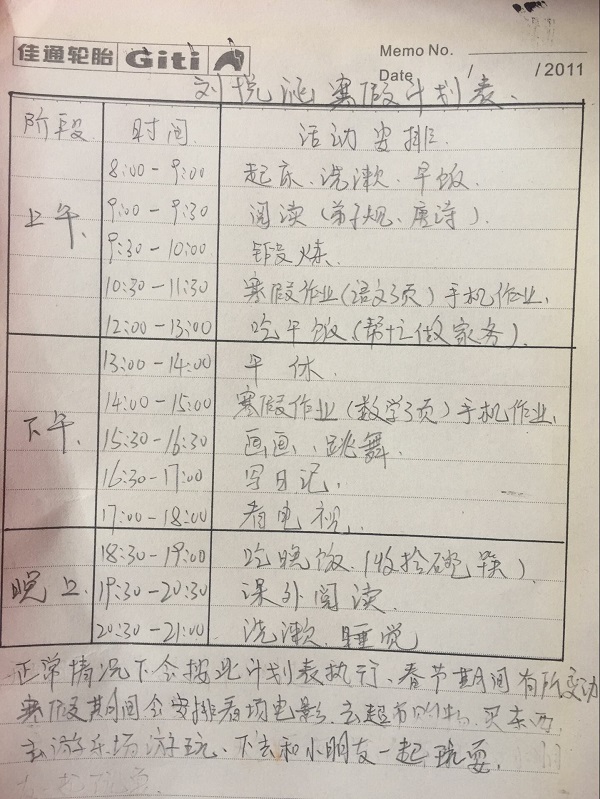 佳通轮胎 Giti
Memo No.
Date / /2011
刘悦涵寒假计划表.
阶段 时间 活动安排.
上午. 8:00-9:00 起床、洗漱、早饭.
9:00-9:30 阅读(弟子规、唐诗).
9:30-10:00 锻炼.
10:30-11:30 寒假作业(语文3页)手机作业.
12:00-13:00 吃午饭(帮忙做家务).
下午. 13:00-14:00 午休.
14:00-15:00 寒假作业(数学3页)手机作业.
15:30-16:30 画画、跳舞.
16:30-17:00 写日记.
17:00-18:00 看电视.
晚上. 18:30-19:00 吃晚饭.(收拾碗筷).
19:30-20:30 课外阅读.
20:30-21:00 洗漱.睡觉
正常情况下会按此计划表执行、春节期间有所变动
寒假期间会安排看场电影、去超市购物、买东西、
去游乐场游玩、下去和小朋友一起玩耍.